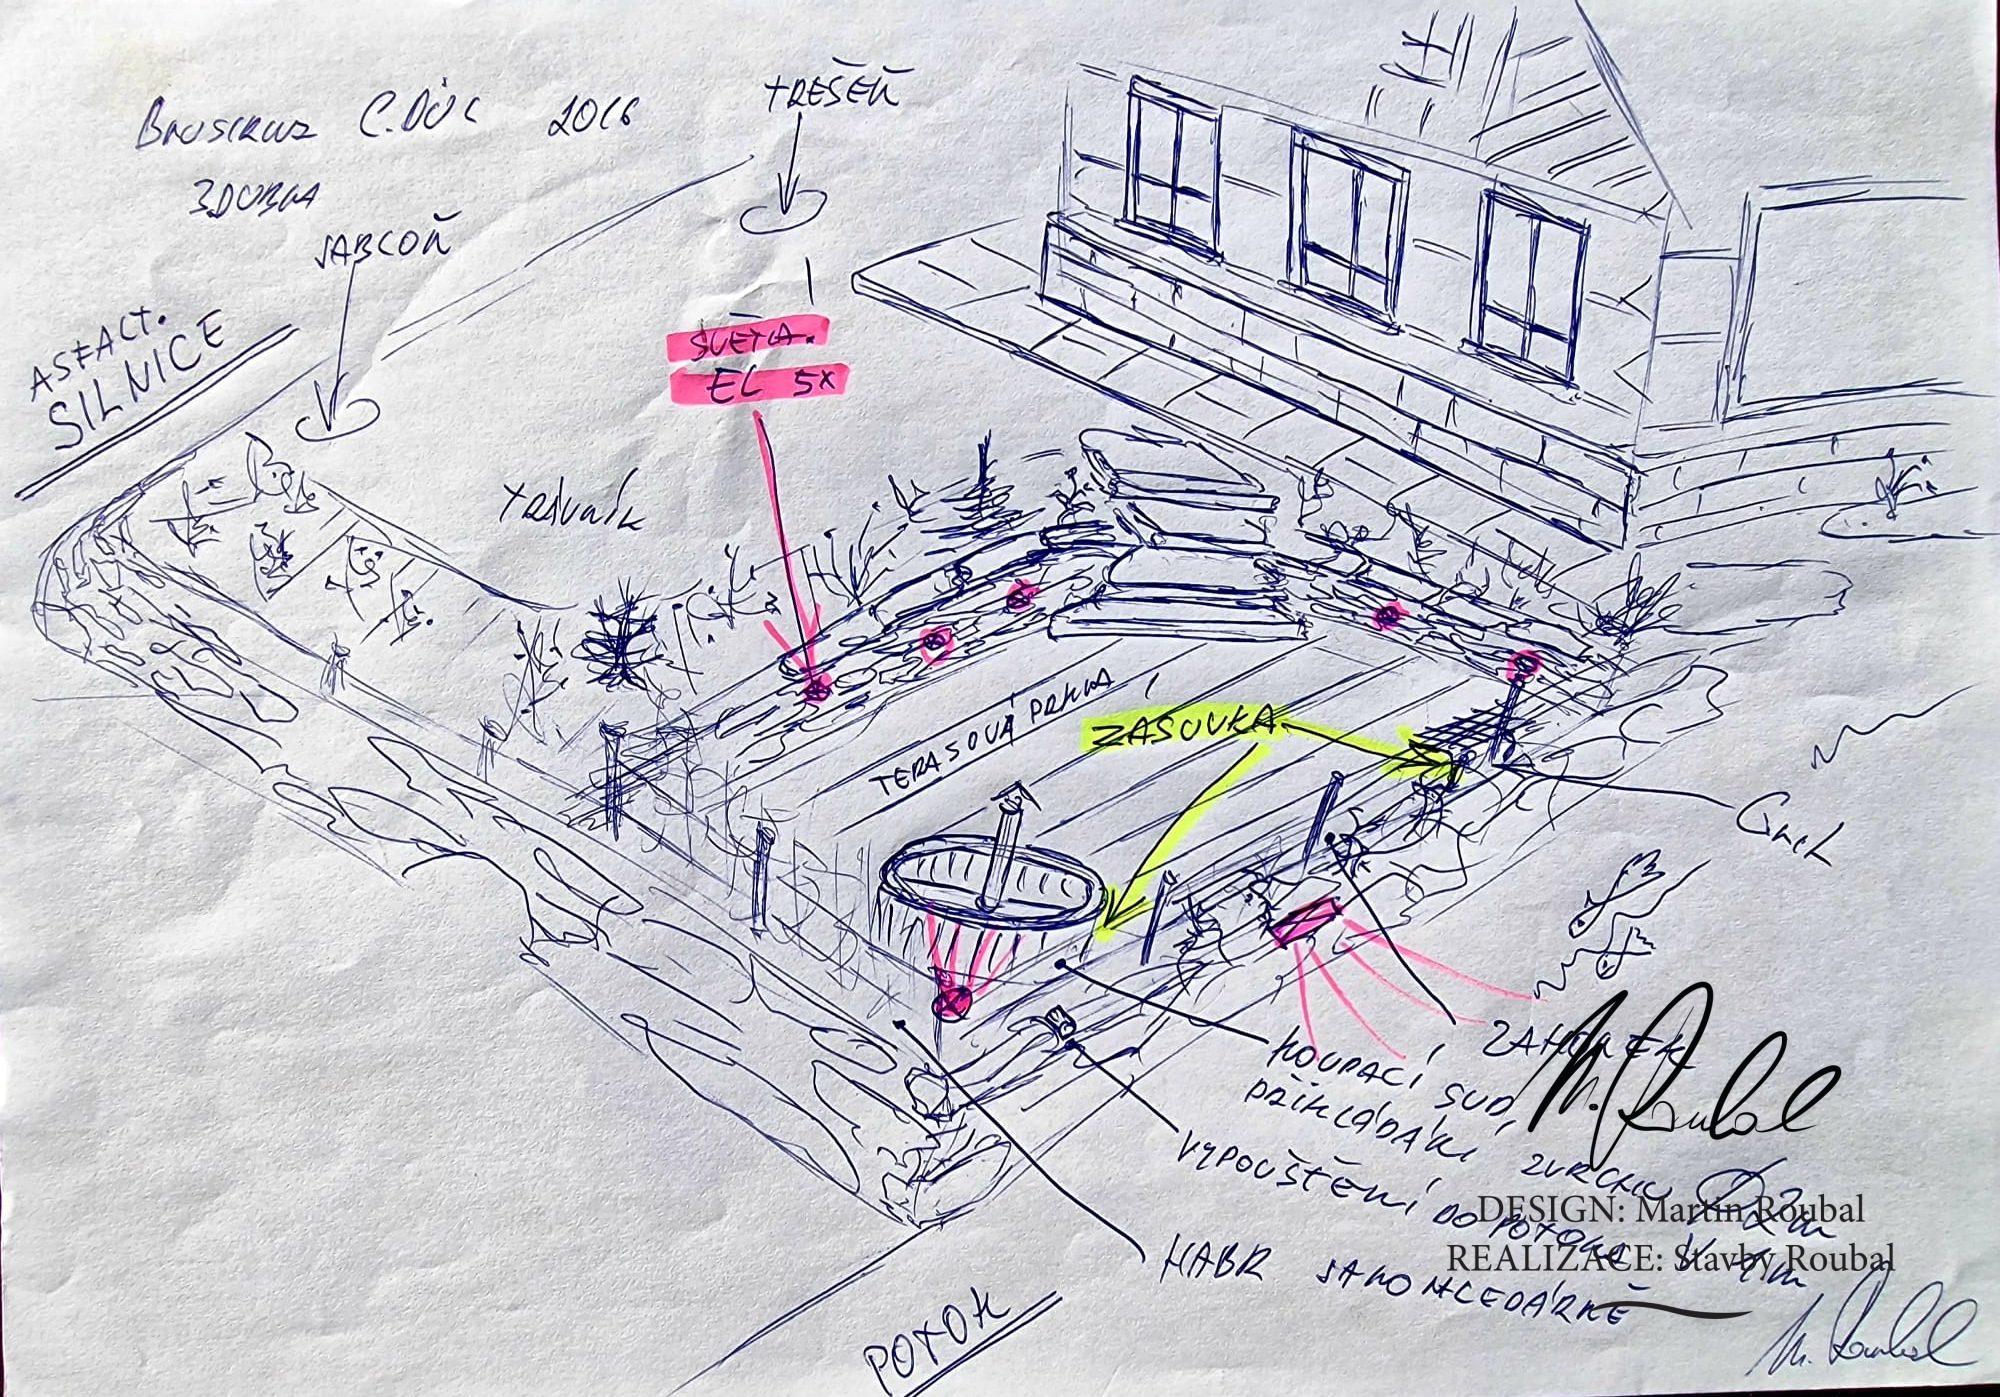 C. DŮL 2016
TREŠEŇ
JABLOŇ
ASFALT.
SILNICE
SVĚTLA.
EL 5X
TRÁVNÍK
TERASOVÁ PRKNA
ZASUVKA
KOUPACÍ SUD,
PŘIKLÁDÁNÍ ZVRCHU
VYPOUŠTĚNÍ DO POTOKA
HABR SAMONCEDÁRNĚ
POTOK
M. Roubal
DESIGN: Martin Roubal
REALIZACE: Stavby Roubal
M. Roubal